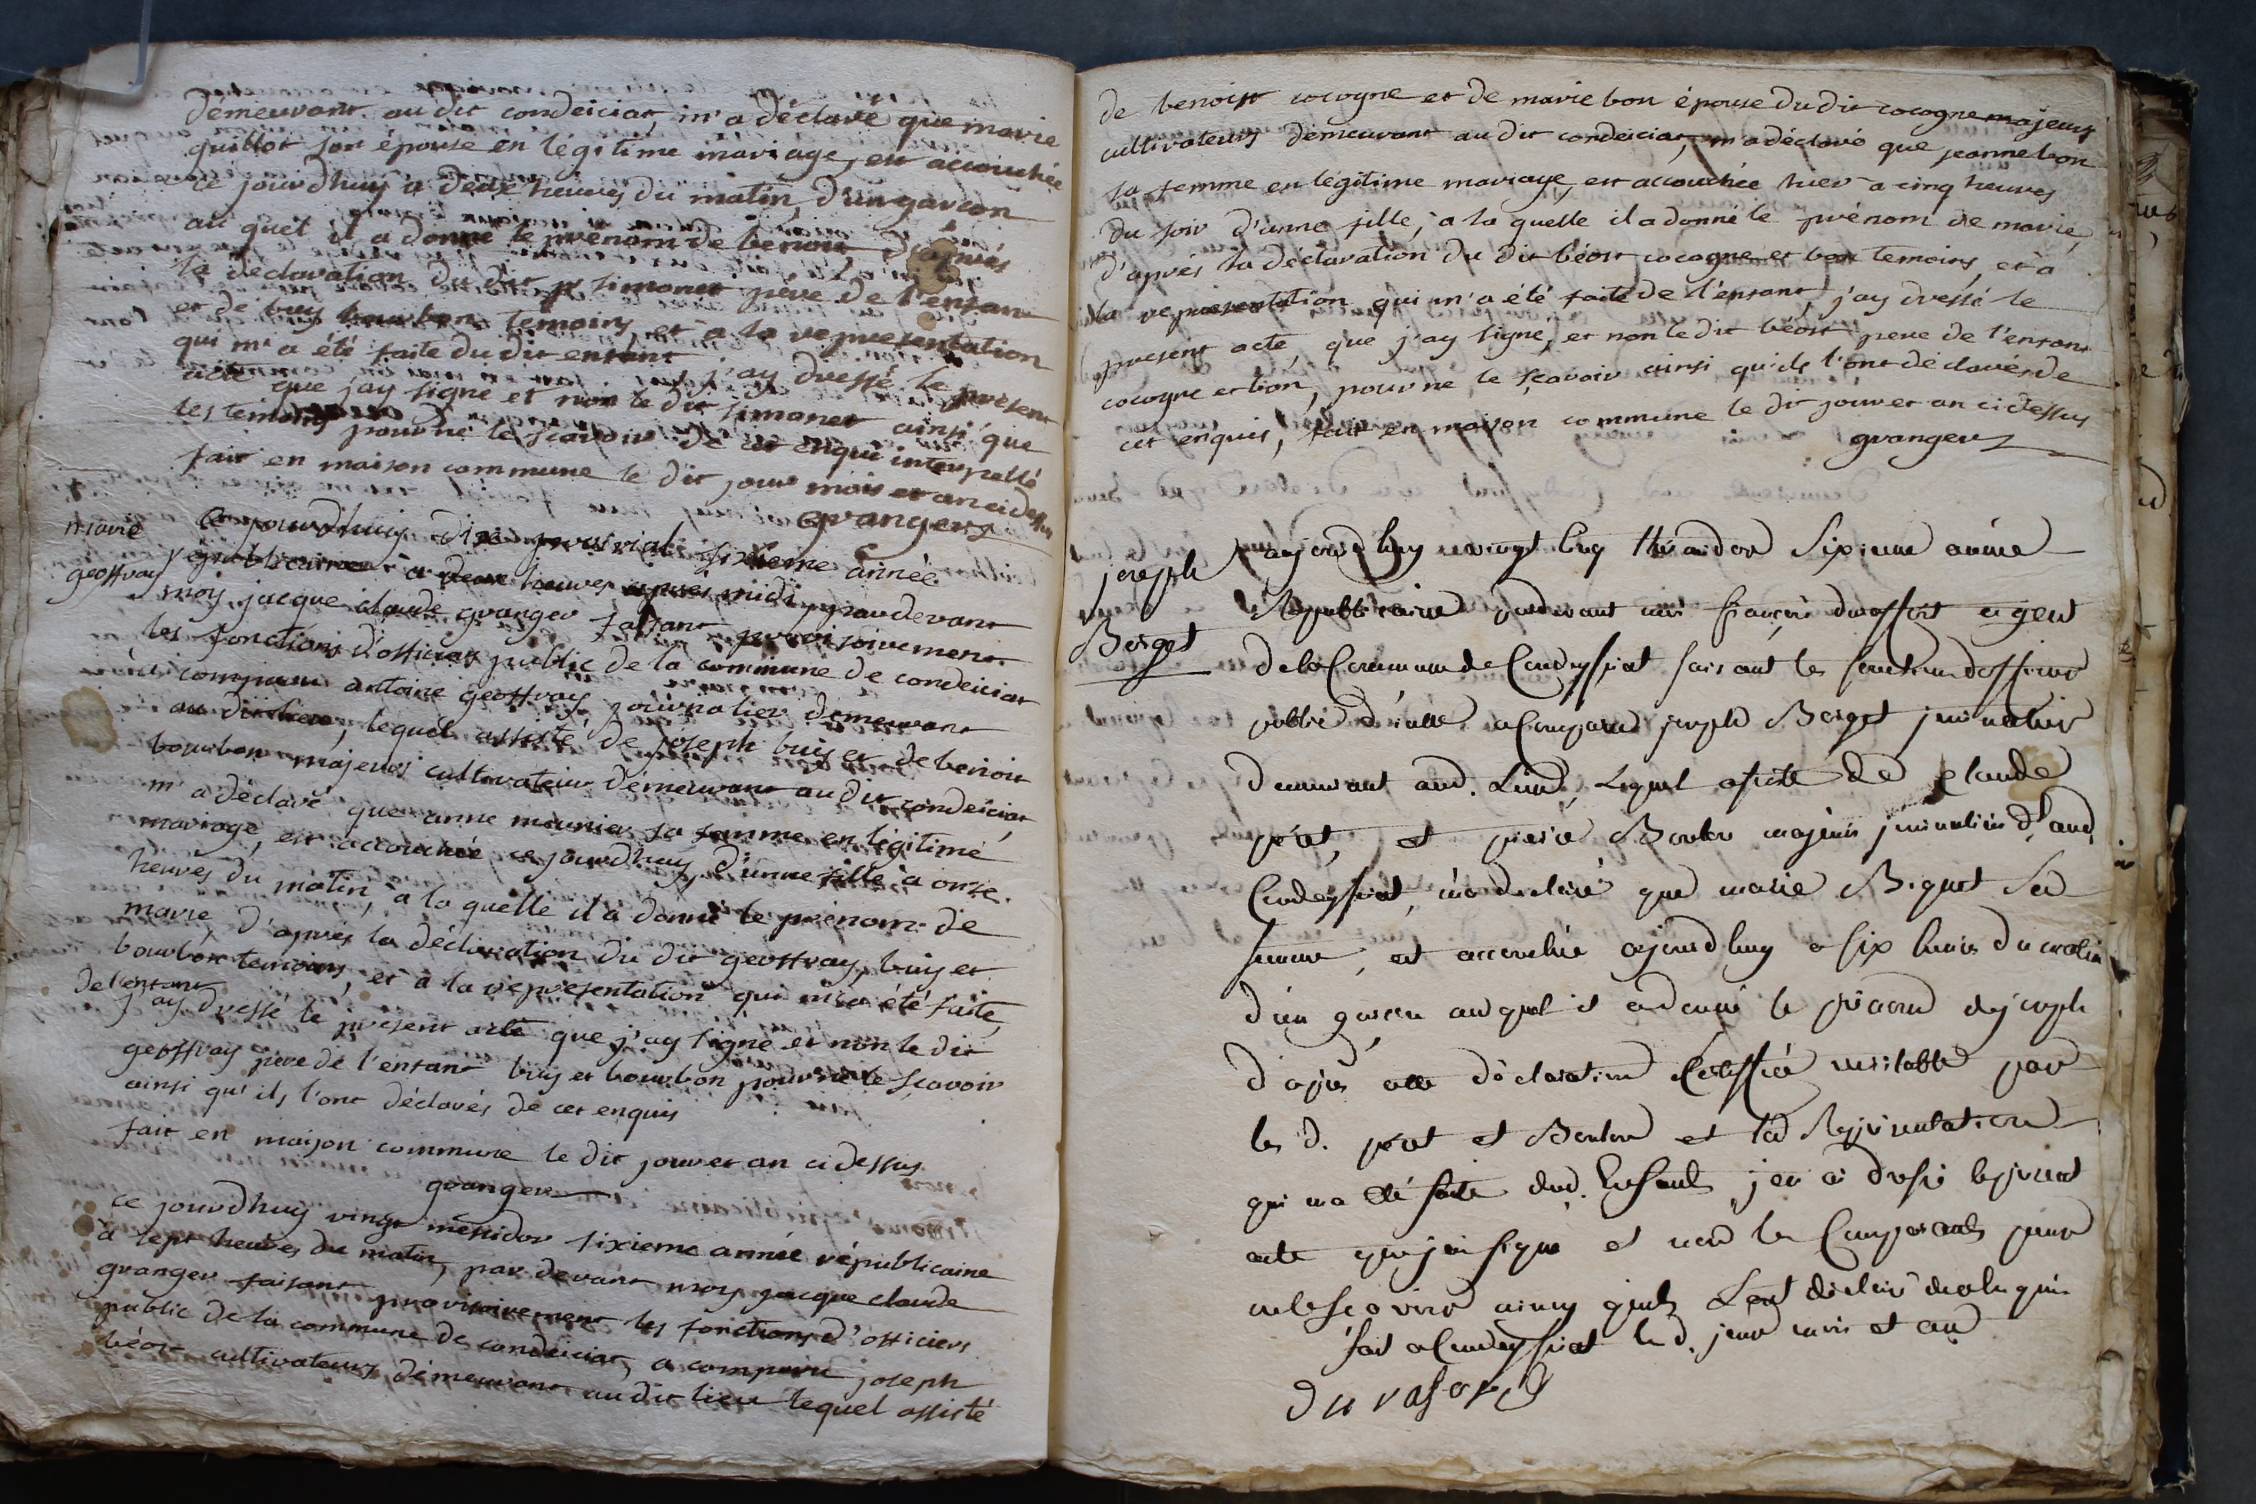 démeurant au dit condeiciat, m'a déclaré que marie
quillot son épouse en légitime mariage, est accouchée
ce jourdhuy a deux heures du matin, d'un garcon
au quel il a donné le prénom de benoit, d'aprés
la déclaration du dit simonet pere de l'enfant
et de buis bourbon temoins, et a la representation
qui m'a été faite du dit enfant j'ay dressé le présent
acte que j'ay signé et non le dit simonet ainsi que
les temoins pour ne le scavoir de cet enquis interpellé
fait en maison commune le dit jour mois et an cidessus
granger
marie
geoffray
Ce jourdhuy dix prairial sixieme année
républicaine à deux heures aprés midi, pardevant
moy jacque claude granger faisant provisoirement
les fonctions d'officier public de la commune de condeiciat
a comparu antoine geoffray journalier demeurant
au dit lieu, lequel assisté de joseph buis et de benoit
bourbon majeurs cultivateurs démeurant au dit condeiciat,
m'a déclaré que anne meunier sa femme en légitime
mariage, est accouchée ce jourdhuy, d'unne fille à onse
heures du matin, à la quelle il a donné le prénom de
marie, d'aprés la déclaration du dit geoffray, buis et
bourbon temoins, et à la representation qui m'a été faite,
de l'enfant
j'ay dressé le présent acte que j'ay signé et non le dit
geoffray pere de l'enfant buis et bourbon pour ne le scavoir
ainsi qu'ils l'ont déclarés de cet enquis
fait en maison commune le dit jour et an cidessus
granger
ce jourdhuy vingt méssidor sixieme année républicaine
à sept heures du matin, par devant moy jacque claude
granger faisant provisoirement les fonctions d'officier
public de la commune de condeiciat, a comparu joseph
béost cultivateurs démeurant au dit lieu lequel assisté
de benoist cocogne et de marie bon épouse du dit cocogne majeurs
cultivateurs démeurant au dit condeiciat, m'a déclaré que jeanne bon
sa femme en légitime mariage, est accouchée hier à cinq heures
du soir d'unne fille, a la quelle il a donné le prénom de marie,
d'aprés la déclaration du dit béost cocogne et bon temoins, et a
la representation qui m'a été faite de l'enfant, j'ay dressé le
present acte, que j'ay signé, et non le dit béost pere de l'enfant
cocogne et bon, pour ne le scavoir ainsi qu'ils l'ont déclarés de
cet enquis, fait en maison commune le dit jour et an cidessus
granger
joseph
Berget
aujourdhuy vingt cinq thermidor sixieme année
Republicaine pardevant moi françois agent
de la Commune de Condeyssiat faisant les fonctions dofficier
public d'icelle a Comparu joseph Berget journalier
demeurant aud. Lieu, Lequel assisté de claude
péret, et pierre Bouton majeurs journaliers d. aud.
Condeyssiat, m'a declaré que marie Biguet sa
femme, est accouchée aujourdhuy a six heures du matin
d'un garcon auquel il a donné le prénom de joseph
d'aprés cette déclaration Certiffiée veritable par
les d. péret et Bouton et la Representation
qui ma été faite dud. Enfant, j'en ai dressé le present
acte que j'ai signé et non les Comparants pour
ne le scavoir ainsy quils Lont déclaré de ce enquis
fait a Condeyssiat led. jour mois et an